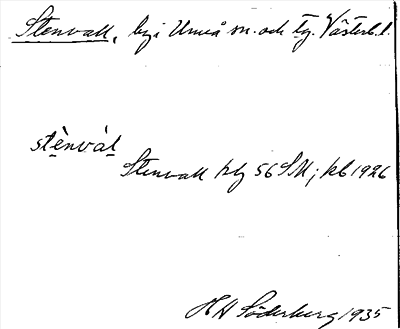 Stenvall, by i Umeå sn. och tg. Västerb.l.
stènvàl
Stenvall kbg 56 SM; kb 1926
H H Söderberg 1935